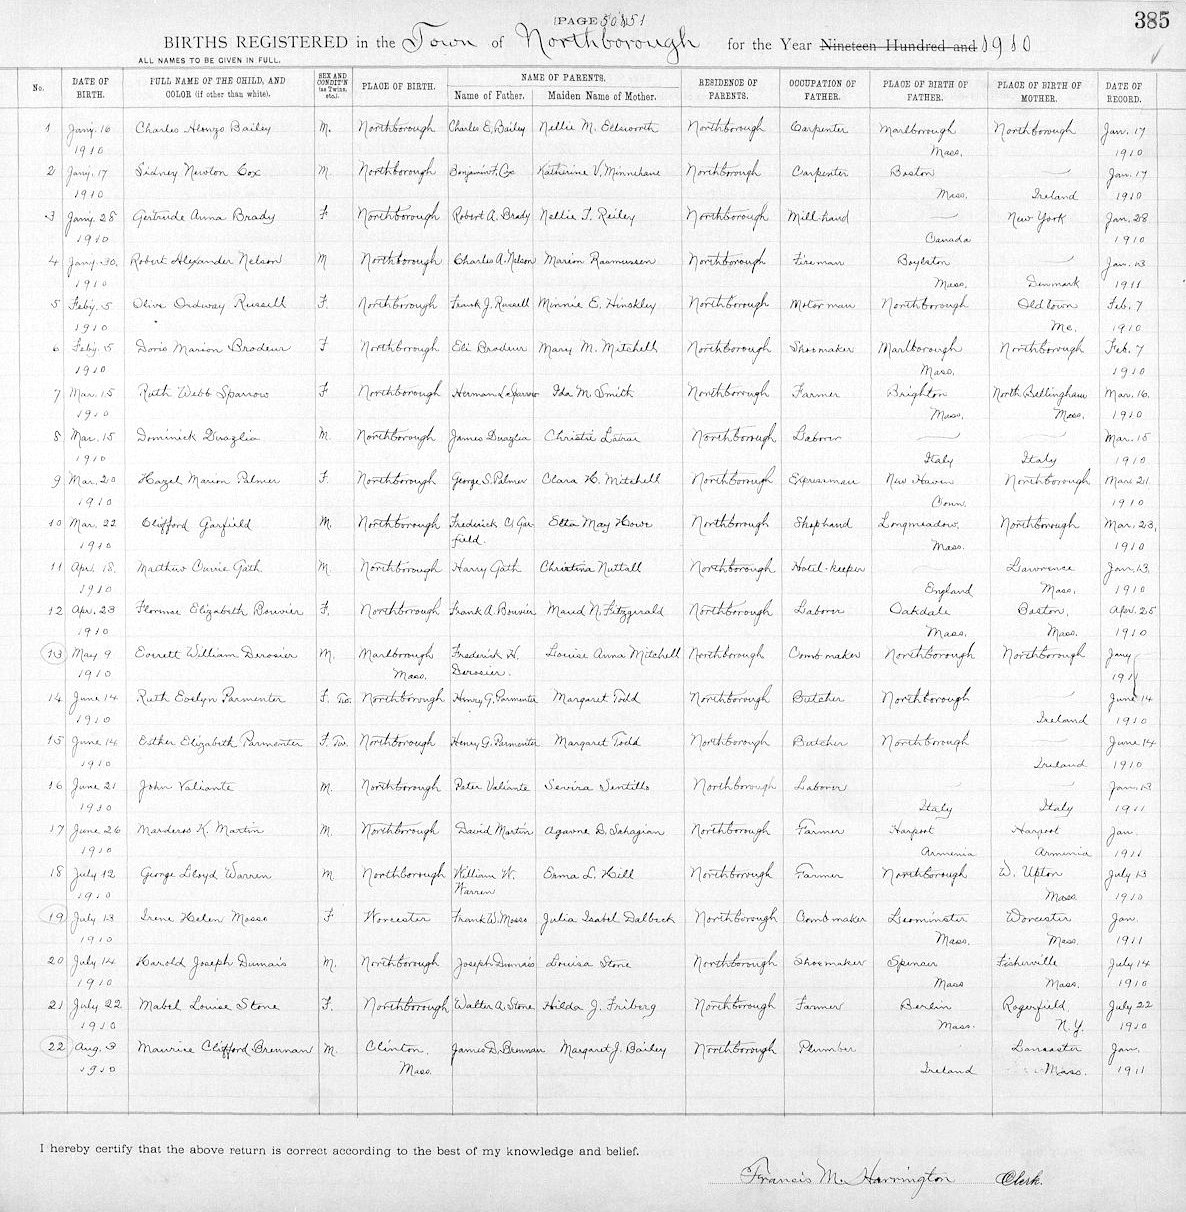 PAGE 50 & 51
385
BIRTHS REGISTERED in the Town of Northborough for the Year Nineteen Hundred and 1910
ALL NAMES TO BE GIVEN IN FULL.
No. DATE OF BIRTH. FULL NAME OF THE CHILD, AND COLOR (if other than white). SEX AND CONDIT'N (as Twins, etc.). PLACE OF BIRTH. NAME OF PARENTS. Name of Father. Maiden Name of Mother. RESIDENCE OF PARENTS. OCCUPATION OF FATHER. PLACE OF BIRTH OF FATHER. PLACE OF BIRTH OF MOTHER. DATE OF RECORD.
1 Jany. 16 Charles Alonzo Bailey M. Northborough Charles E. Bailey Nellie M. Ellsworth Northborough Carpenter Marlborough Northborough Jan. 17
1910 Mass. 1910
2 Jany. 17 Sidney Newton Cox M Northborough Benjamin F. Cox Katherine V. Minnehane Northborough Carpenter Boston — Jan. 17
1910 Mass. Ireland 1910
3 Jany. 28 Gertrude Anna Brady F Northborough Robert A. Brady Nellie F. Reiley Northborough Mill-hand — New York Jan. 28
1910 Canada 1910
4 Jany. 30. Robert Alexander Nelson M Northborough Charles A. Nelson Marion Rasmussen Northborough Fireman Boylston — Jan. 13
1910 Mass. Denmark 1911
5 Feby. 5 Olive Ordway Russell F. Northborough Frank J. Russell Minnie E. Hinckley Northborough Motorman Northborough Oldtown Feb. 7
1910 Me. 1910
6 Feby. 5 Doris Marion Brodeur F Northborough Eli Brodeur Mary M. Mitchell Northborough Shoemaker Marlborough Northborough Feb. 7
1910 Mass. 1910
7 Mar. 15 Ruth Webb Sparrow F Northborough Herman L. Sparrow Ida M. Smith Northborough Farmer Brighton North Bellingham Mar. 16.
1910 Mass. Mass. 1910
8 Mar. 15 Dominick M. Northborough James Christie Northborough Laborer — — Mar. 15
1910 Italy Italy 1910
9 Mar. 20 Hazel Marion Palmer F. Northborough George S. Palmer Clara H. Mitchell Northborough Expressman New Haven Northborough Mar. 21
1910 Conn. 1910
10 Mar. 22 Clifford Garfield M. Northborough Frederick C. Gar Etta May Howe Northborough Longmeadow. Northborough Mar. 23.
1910 field. Mass. 1910
11 Apr. 18. Matthew Currie Gath M Northborough Harry Gath Christina Nuttall Northborough Hotel-keeper — Lawrence Jan. 13.
1910 England Mass. 1910
12 Apr. 23 Florence Elizabeth Bouvier F. Northborough Frank A. Bouvier Maud N. Fitzgerald Northborough Laborer Oakdale Boston, Apr. 25
1910 Mass. Mass. 1910
13 May 9 Everett William Derosier M. Marlborough Frederick H. Louise Anna Mitchell Northborough Comb maker Northborough Northborough Jany
1910 Mass. Derosier. 1911
14 June 14 Ruth Evelyn Parmenter F. Tw. Northborough Henry G. Parmenter Margaret Todd Northborough Butcher Northborough — June 14
1910 Ireland 1910
15 June 14 Esther Elizabeth Parmenter F. Tw. Northborough Henry G. Parmenter Margaret Todd Northborough Butcher Northborough — June 14
1910 Ireland 1910
16 June 21 John Valiante M. Northborough Peter Valiante Northborough Laborer — — Jan. 13
1910 Italy Italy 1911
17 June 26 Marderos K. Martin M. Northborough David Martin Agavne D. Sahagian Northborough Farmer Harpoot Harpoot Jan.
1910 Armenia Armenia 1911
18 July 12 George Lloyd Warren M Northborough William W. Erma L. Hill Northborough Farmer Northborough W. Upton July 13
1910 Warren Mass. 1910
19 July 13 Irene Helen Mosso F Worcester Frank W. Mosso Julia Isabel Dalbeck Northborough Comb maker Leominster Worcester Jan.
1910 Mass. Mass. 1911
20 July 14 Harold Joseph Dumais M. Northborough Joseph Dumais Louisa Stone Northborough Shoemaker Spencer Fisherville July 14
1910 Mass Mass. 1910
21 July 22 Mabel Louise Stone F. Northborough Walter A. Stone Hilda J. Friberg Northborough Farmer Berlin Rogerfield July 22
1910 Mass. N.Y. 1910
22 Aug. 3 Maurice Clifford Brennan M. Clinton, James D. Brennan Margaret J. Bailey Northborough Plumber Lancaster Jan.
1910 Mass. Ireland Mass. 1911
I hereby certify that the above return is correct according to the best of my knowledge and belief.
Francis M. Harrington Clerk.